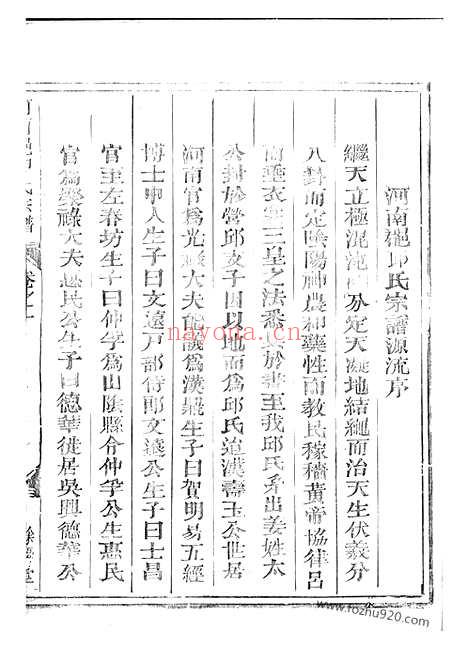 河南邱氏宗譜源流序
繼天立極混沌分定天凝地結繩而治天生伏羲分
八卦而定陰陽神農和藥性而教民稼穡黃帝協律呂
而垂衣 三皇之法悉 於書至我邱氏系出姜姓太
公封於營邱支子因以地而為邱氏迨漢壽玉公世居
河南官為光祿大夫能議為漢 生子曰賀明易五經
博士中人生子曰文遠戶部侍郎文遠公生子曰士昌
官至左春坊生子曰仲孚為山陰縣令仲孚公生惠民
官為榮祿大夫惠民公生子曰德華徙居吳興德華公
氏宗譜
卷之一
堂
nayona.cn
www.fozhu920.com